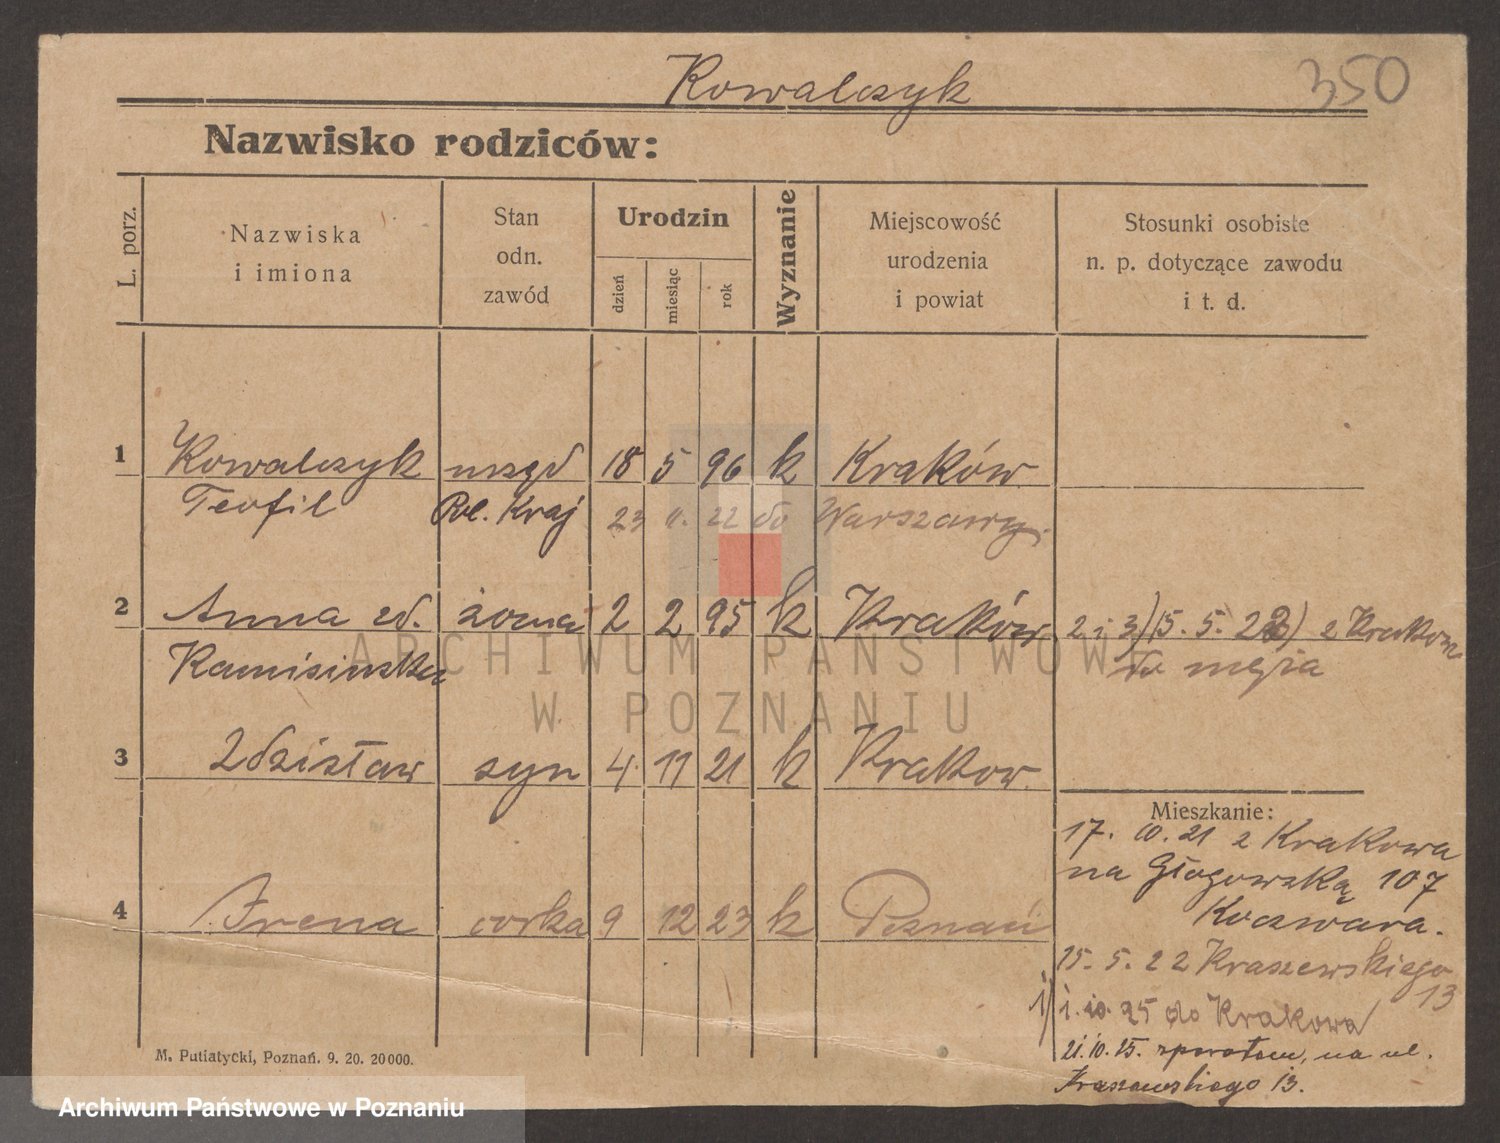 Kowalczyk
350
Nazwisko rodziców:
L. porz.
Nazwiska
i imiona
Stan
odn.
zawód
Urodzin
dzień
miesiąc
rok
Wyznanie
Miejscowość
urodzenia
i powiat
Stosunki osobiste
n. p. dotyczące zawodu
i t. d.
1 Kowalczyk urzęd 18 5 96 k Kraków
Teofil Pol. Kraj 23 11. 22 do Warszawy.
2 Anna zd. żona 2 2 95 k Kraków 2 i 3) 15. 5. 22) z Krakowa
Kamisinska do męża
3 Zdzisław syn 4. 11 21 k Krakow.
Mieszkanie:
17. 10. 21 z Krakowa
na Głogowską 107
Koczwara.
4 Irena corka 9 12 23 k Poznań
15. 5. 22 Kraszewskiego
13
1) 1. 10. 25 do Krakowa
21.10.25. zpowrotem, na ul.
Kraszewskiego 13.
M. Putiatycki, Poznań. 9. 20. 20000.
ARCHIWUM PAŃSTWOWE
W POZNANIU
Archiwum Państwowe w Poznaniu